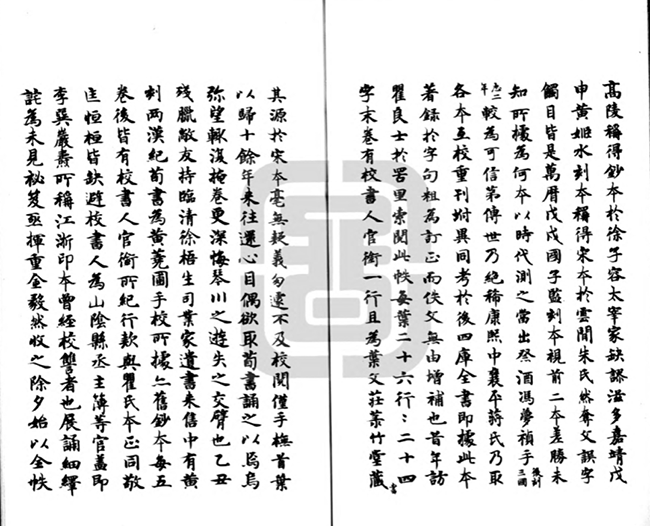 高陵稱得鈔本於徐子容太宰家缺謬滋多嘉靖戊
申黃姬水刻本稱得宋本於雲間朱氏然奪文誤字
觸目皆是萬曆戊戌國子監刻本視前二本差勝未
知所據為何本以時代測之當出祭酒馮夢禎手
較為可信第傳世乃絕稀康熙中襄平蔣氏乃取
各本互校重刊坿異同考於後四庫全書即據此本
著錄於字句粗為訂正而佚文無由增補也昔年訪
瞿良士於罟里索閱此帙每葉二十六行行二十四
字末卷有校書人官銜一行且為葉文莊菉竹堂藏
書
其源於宋本毫無疑義匆遽不及校閱僅手橅首葉
以歸十餘年來往還心目偶欲取荀書誦之以烏烏
彌望輒復掩卷更深悔琴川之遊失之交臂也乙丑
殘臘敝友持臨清徐梧生司業家遺書來售中有黃
刻兩漢紀荀書為黃蕘圃手校所據亦舊鈔本每五
卷後皆有校書人官銜所紀行款與瞿氏本正同敬
匡恒桓皆缺避校書人為山陰縣丞主簿等官蓋即
李巽巖燾所稱江浙印本曾經校讐者也展誦細繹
詫為未見祕笈亟揮重金毅然收之除夕始以全帙